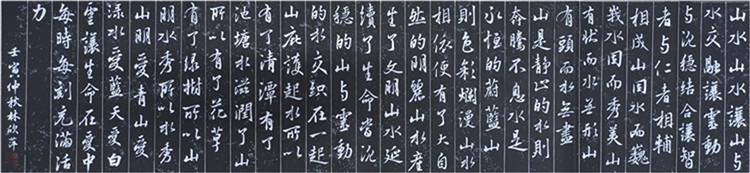 山水山水山与
水交融讓靈動
与沉穩結合讓智
者与仁者相輔
相成山因水而巍
峩水因而秀美山
有狀而水無形山
有頭而水無盡
山是靜止的水則
奔騰不息水是
永恒的蔚藍山
則色彩爛漫山水
相依便有了大自
然的明麗山水產
生了文明山水延
續了生命當沉
穩的山与靈動
的水交織在一起
山庇護起水所以
有了清潭有了
池塘水滋潤了山
所以有了花草
有了綠樹所以山
明水秀所以水秀
山明愛青山愛
淥水愛藍天愛白
雲讓生命在愛中
每時每刻充滿活
力
壬寅仲秋林欣